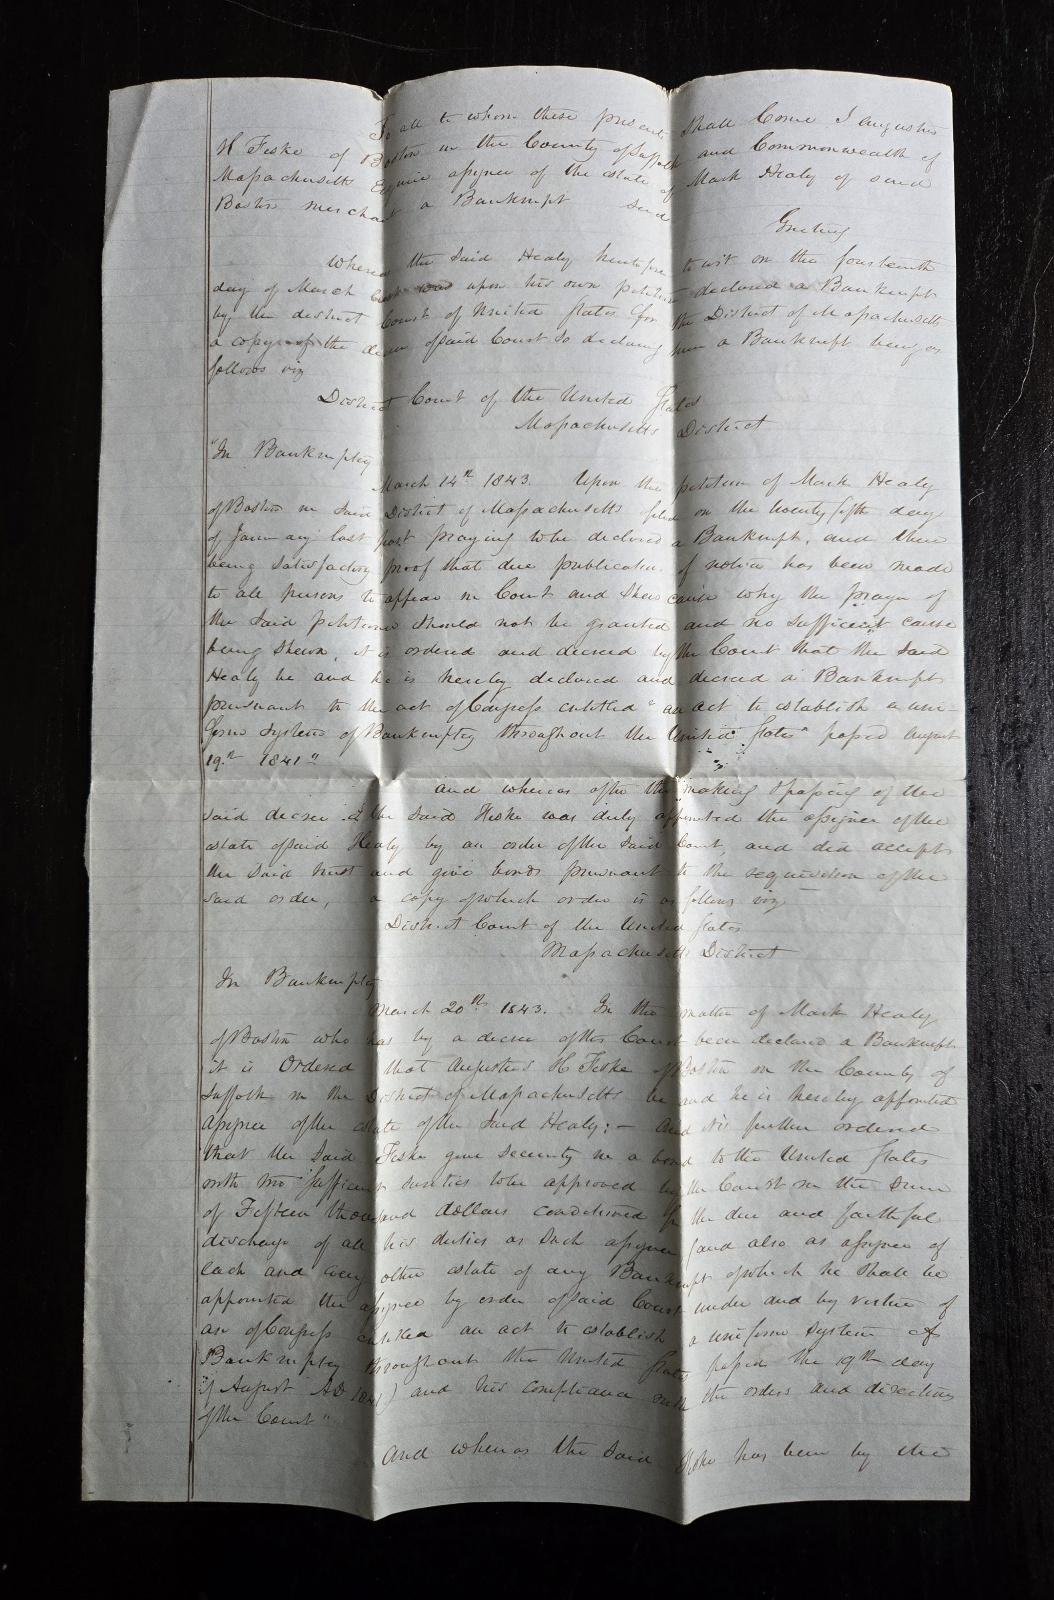 To all to whom these presents Shall Come I Augustus
H Fiske of Boston in the County of Suffolk and Commonwealth of
Massachusetts Esquire assignee of the estate of Mark Healy of said
Boston merchant a Bankrupt Send
Greeting
Whereas the Said Healy heretofore to wit on the fourteenth
day of March last was upon his own petition declared a Bankrupt
by the district Court of United States for the District of Massachusetts
a copy of the decree of said Court So declaring him a Bankrupt being as
follows viz
District Court of the United States
Massachusetts District
"In Bankruptcy
March 14th 1843. Upon the petition of Mark Healy
of Boston in Said District of Massachusetts filed on the twenty fifth day
of January last past praying to be declared a Bankrupt, and there
being Satisfactory proof that due publication of notice has been made
to all persons to appear in Court and Shew cause why the prayer of
the Said petitioner Should not be granted and no sufficient cause
being Shewn, it is ordered and decreed by the Court that the Said
Healy be and he is hereby declared and decreed a Bankrupt
pursuant to the act of Congress entitled "an act to establish a uni-
form System of Bankruptcy throughout the United States" passed August
19th 1841"
and whereas after the making & passing of the
said decree the Said Fiske was duly appointed the assignee of the
estate of said Healy by an order of the Said Court, and did accept
the Said trust and give bonds pursuant to the requisition of the
said order, a copy of which order is as follows viz
District Court of the United States
Massachusetts District
In Bankruptcy
March 20th 1843. In the matter of Mark Healy
of Boston who has by a decree of the Court been declared a Bankrupt
it is Ordered that Augustus H Fiske of Boston in the County of
Suffolk in the District of Massachusetts be and he is hereby appointed
Assignee of the estate of the Said Healy: – And it is further ordered
that the Said Fiske give Security in a bond to the United States
with two Sufficient Sureties to be approved by the Court in the Sum
of Fifteen thousand dollars conditioned for the due and faithful
discharge of all his duties as Such assignee (and also as assignee of
each and every other estate of any Bankrupt of which he Shall be
appointed the assignee by order of said Court under and by virtue of
an of Congress entitled an act to establish a uniform System of
Bankruptcy throughout the United States passed the 19th day
of August AD 1841) and his compliance with the orders and directions
of the Court"
And whereas the Said Fiske has been by the